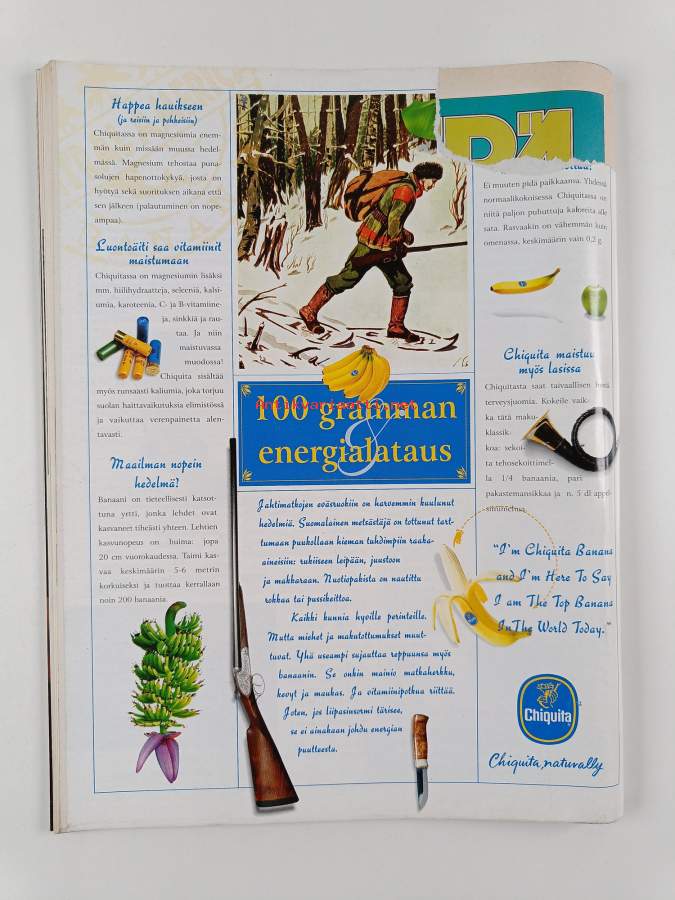 Happea hauikseen
(ja reisiin ja pohkeisiin)
Chiquitassa on magnesiumia enem-
män kuin missään muussa hedel-
mässä. Magnesium tehostaa puna-
solujen hapenottokykyä, josta on
hyötyä sekä suorituksen aikana että
sen jälkeen (palautuminen on nope-
ampaa).
Luontoäiti saa vitamiinit
maistumaan
Chiquitassa on magnesiumin lisäksi
mm. hiilihydraatteja, seleeniä, kalsi-
umia, karoteenia, C- ja B-vitamiine-
ja, sinkkiä ja rau-
taa. Ja niin
maistuvassa
muodossa!
Chiquita sisältää
myös runsaasti kaliumia, joka torjuu
suolan haittavaikutuksia elimistössä
ja vaikuttaa verenpainetta alen-
tavasti.
Maailman nopein
hedelmä?
Banaani on tieteellisesti katsot-
tuna yrtti, jonka lehdet ovat
kasvaneet tiheästi yhteen. Lehtien
kasvunopeus on huima: jopa
20 cm vuorokaudessa. Taimi kas-
vaa keskimäärin 5-6 metrin
korkuiseksi ja tuottaa kerrallaan
noin 200 banaania.
100 gramman
&
energialataus
antikvariaatti.net
Jahtimatkojen eväsruokiin on harvemmin kuulunut
hedelmiä. Suomalainen metsästäjä on tottunut tart-
tumaan puukollaan hieman tuhdimpiin raaka-
aineisiin: rukiiseen leipään, juustoon
ja makkaraan. Nuotiopakista on nautittu
rokkaa tai pussikeittoa.
Kaikki kunnia hyville perinteille.
Mutta miehet ja makutottumukset muut-
tuvat. Yhä useampi sujauttaa reppuunsa myös
banaanin. Se onkin mainio matkaherkku,
kevyt ja maukas. Ja vitamiinipotkua riittää.
Joten, jos liipasinsormi tärisee,
se ei ainakaan johdu energian
puutteesta.
Ei muuten pidä paikkaansa. Yhdessä
normaalikokoisessa Chiquitassa on
niitä paljon puhuttuja kaloreita alle
sata. Rasvaakin on vähemmän kuin
omenassa, keskimäärin vain 0,2 g.
Chiquita maistuu
myös lasissa
Chiquitasta saat taivaallisen hyviä
terveysjuomia. Kokeile vaik-
ka tätä maku-
klassik-
koa: sekoi-
ta tehosekoittimel-
la 1/4 banaania, pari
pakastemansikkaa ja n. 5 dl
"I'm Chiquita Banana
and I'm Here To Say
I am The Top Banana
In The World Today."
Chiquita
Chiquita, naturally